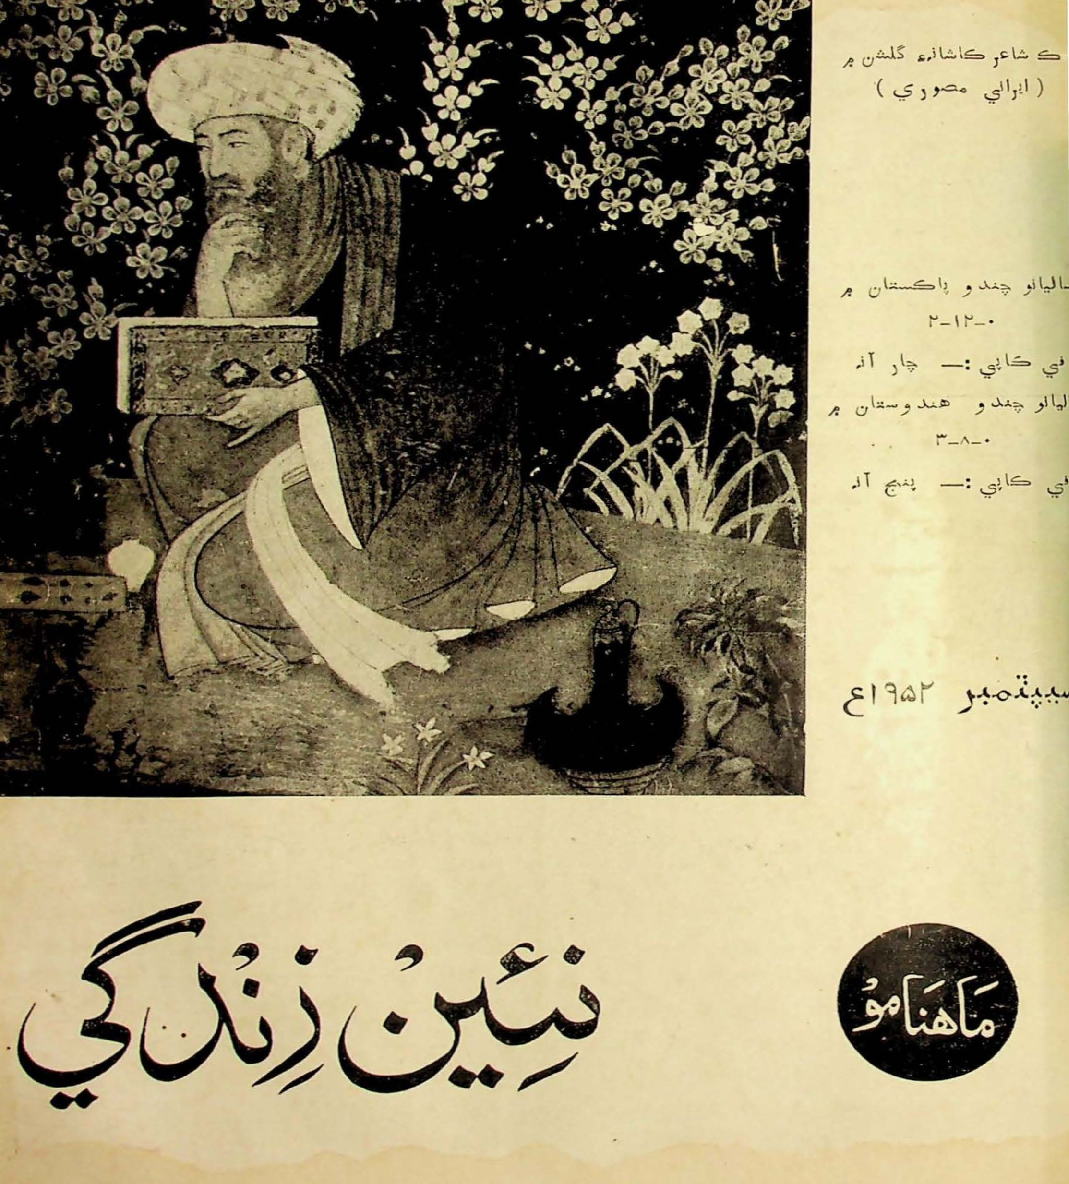 ڪ شاعر ڪاشانہء گلشن ۾
( ايراني مصوري )
ساليانو چندو پاڪستان ۾
۲-۱۲-۰
في ڪاپي :— چار آنہ
ساليانو چندو هندوستان ۾
۳-۸-۰
في ڪاپي :— پنج آنہ
سيپٽمبر ۱۹۵۲ع
نئِين زِندگي
مَاهنَامو